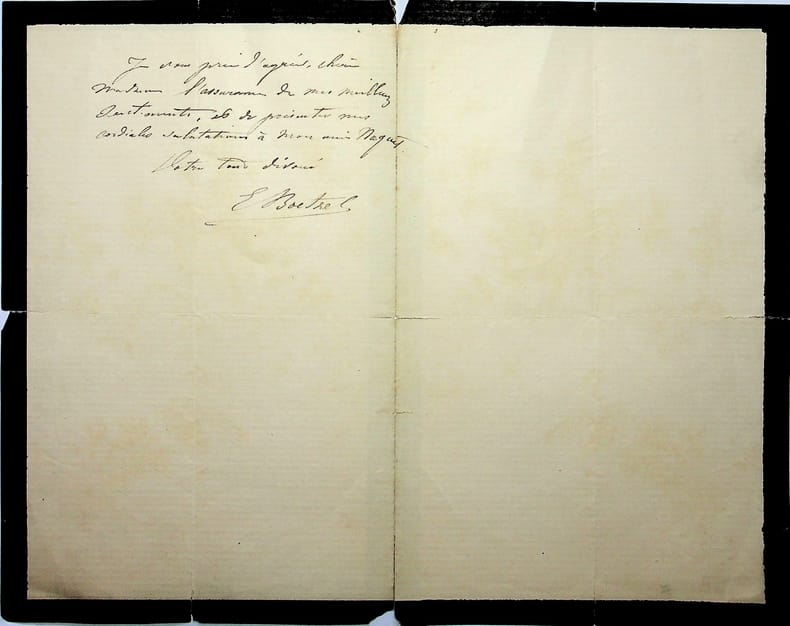 Je vous prie d'agréer, chère
madame l'assurance de mes meilleurs
sentiments, et de présenter mes
cordiales salutations à mon ami Naquet.
Votre tout dévoué
E Boetzel